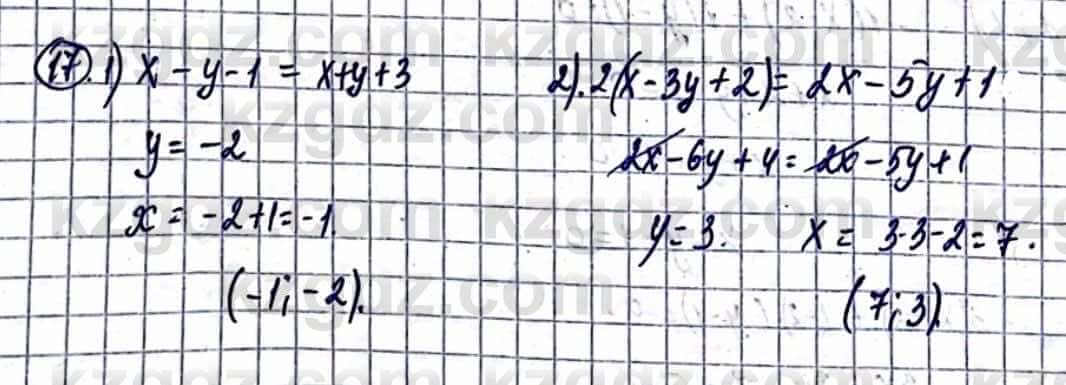 17. 1) x - y - 1 = x + y + 3
y = -2
x = -2 + 1 = -1
(-1; -2).
2). 2(x - 3y + 2) = 2x - 5y + 1
2x - 6y + 4 = 2x - 5y + 1
y = 3. x = 3·3 - 2 = 7.
(7; 3).
kzgdz.com
kzgdz.com
kzgdz.com
kzgdz.com
kzgdz.com
kzgdz.com